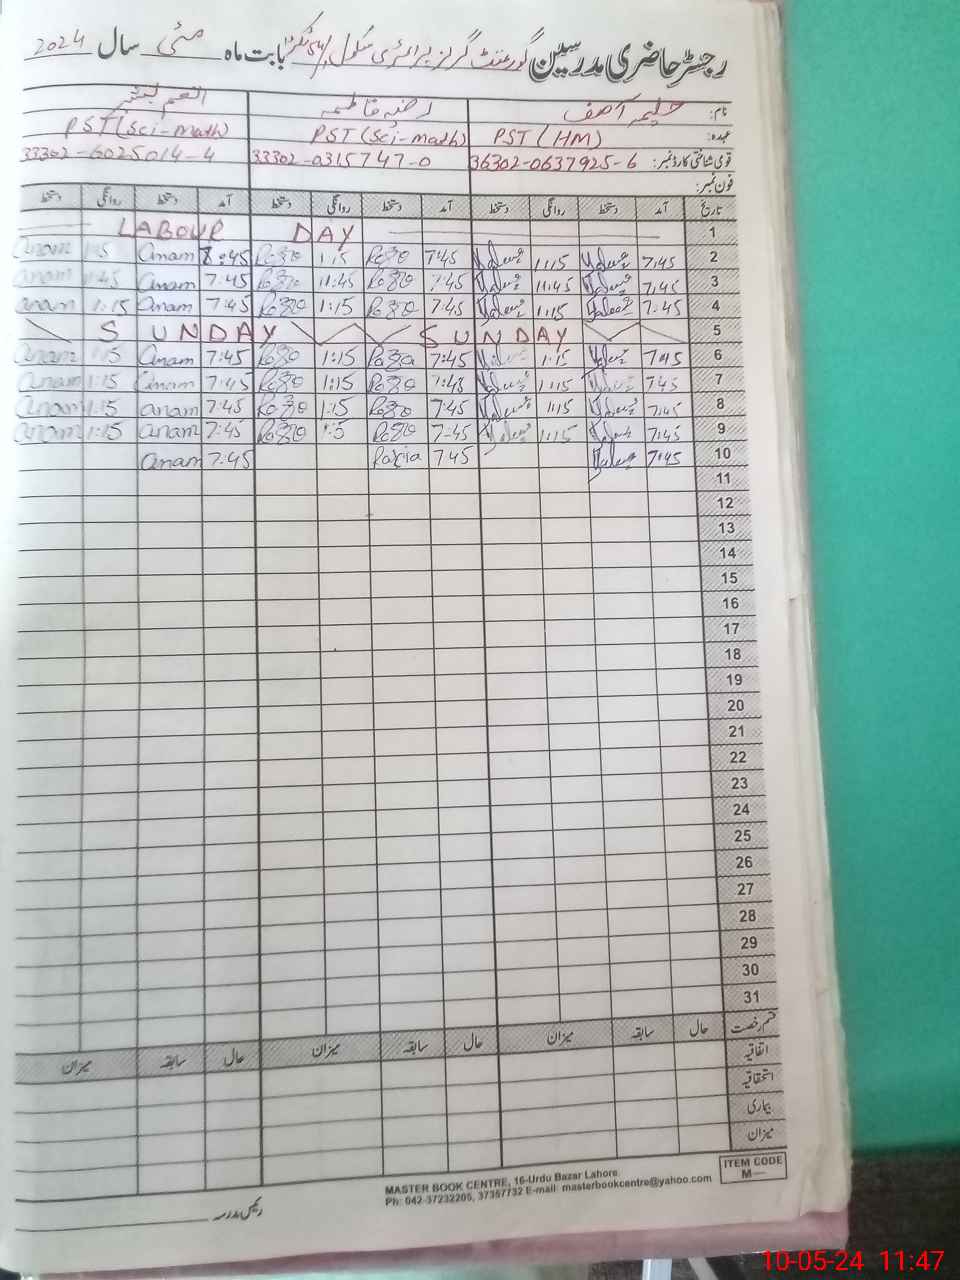 رجسٹر حاضری مدرسین گورنمنٹ گرلز پرائمری سکول بابت ماہ مئی سال 2024
نام: حلیمہ آصف رضیہ فاطمہ انعم بشیر
عہدہ: PST (HM) PST (Sci-math) PST (Sci-math)
قومی شناختی کارڈ نمبر: 36302-0637925-6 33302-0315747-0 33302-6025014-4
فون نمبر:
تاریخ آمد دستخط روانگی دستخط آمد دستخط روانگی دستخط آمد دستخط روانگی دستخط
LABOUR DAY 1
anam 1:15 anam 7:45 1:15 7:45 1:15 7:45 2
anam 11:45 anam 7:45 11:45 7:45 11:45 7:45 3
anam 1:15 anam 7:45 1:15 7:45 1:15 7:45 4
SUNDAY SUNDAY 5
anam 1:15 anam 7:45 1:15 7:45 1:15 7:45 6
anam 1:15 anam 7:45 1:15 7:45 1:15 7:45 7
anam 1:15 anam 7:45 1:15 7:45 1:15 7:45 8
anam 1:15 anam 7:45 1:5 7:45 1:15 7:45 9
anam 7:45 Razia 7:45 7:45 10
11
12
13
14
15
16
17
18
19
20
21
22
23
24
25
26
27
28
29
30
31
قسم رخصت حال سابقہ میزان حال سابقہ میزان حال سابقہ میزان
اتفاقیہ
استحقاقیہ
بیماری
میزان
ITEM CODE
M—
MASTER BOOK CENTRE, 16-Urdu Bazar Lahore.
Ph: 042-37232205, 37357732 E-mail: masterbookcentre@yahoo.com
رئیس مدرسہ
10-05-24 11:47